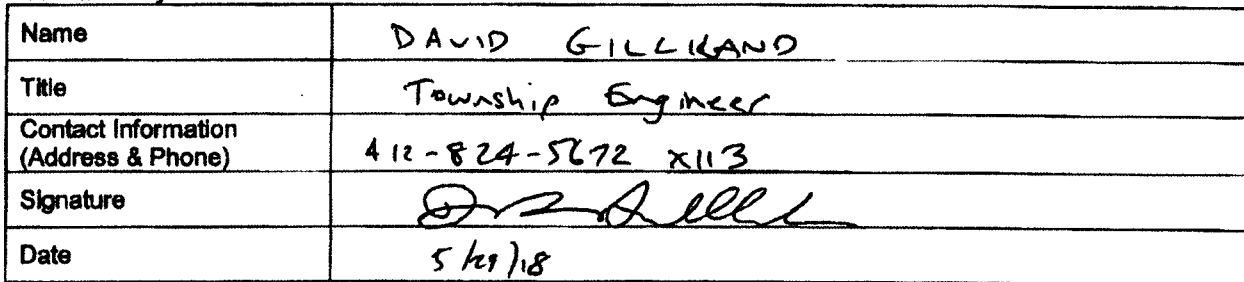 Name DAVID GILLILAND
Title Township Engineer
Contact Information
(Address & Phone) 412-824-5672 x113
Signature
Date 5/29/18